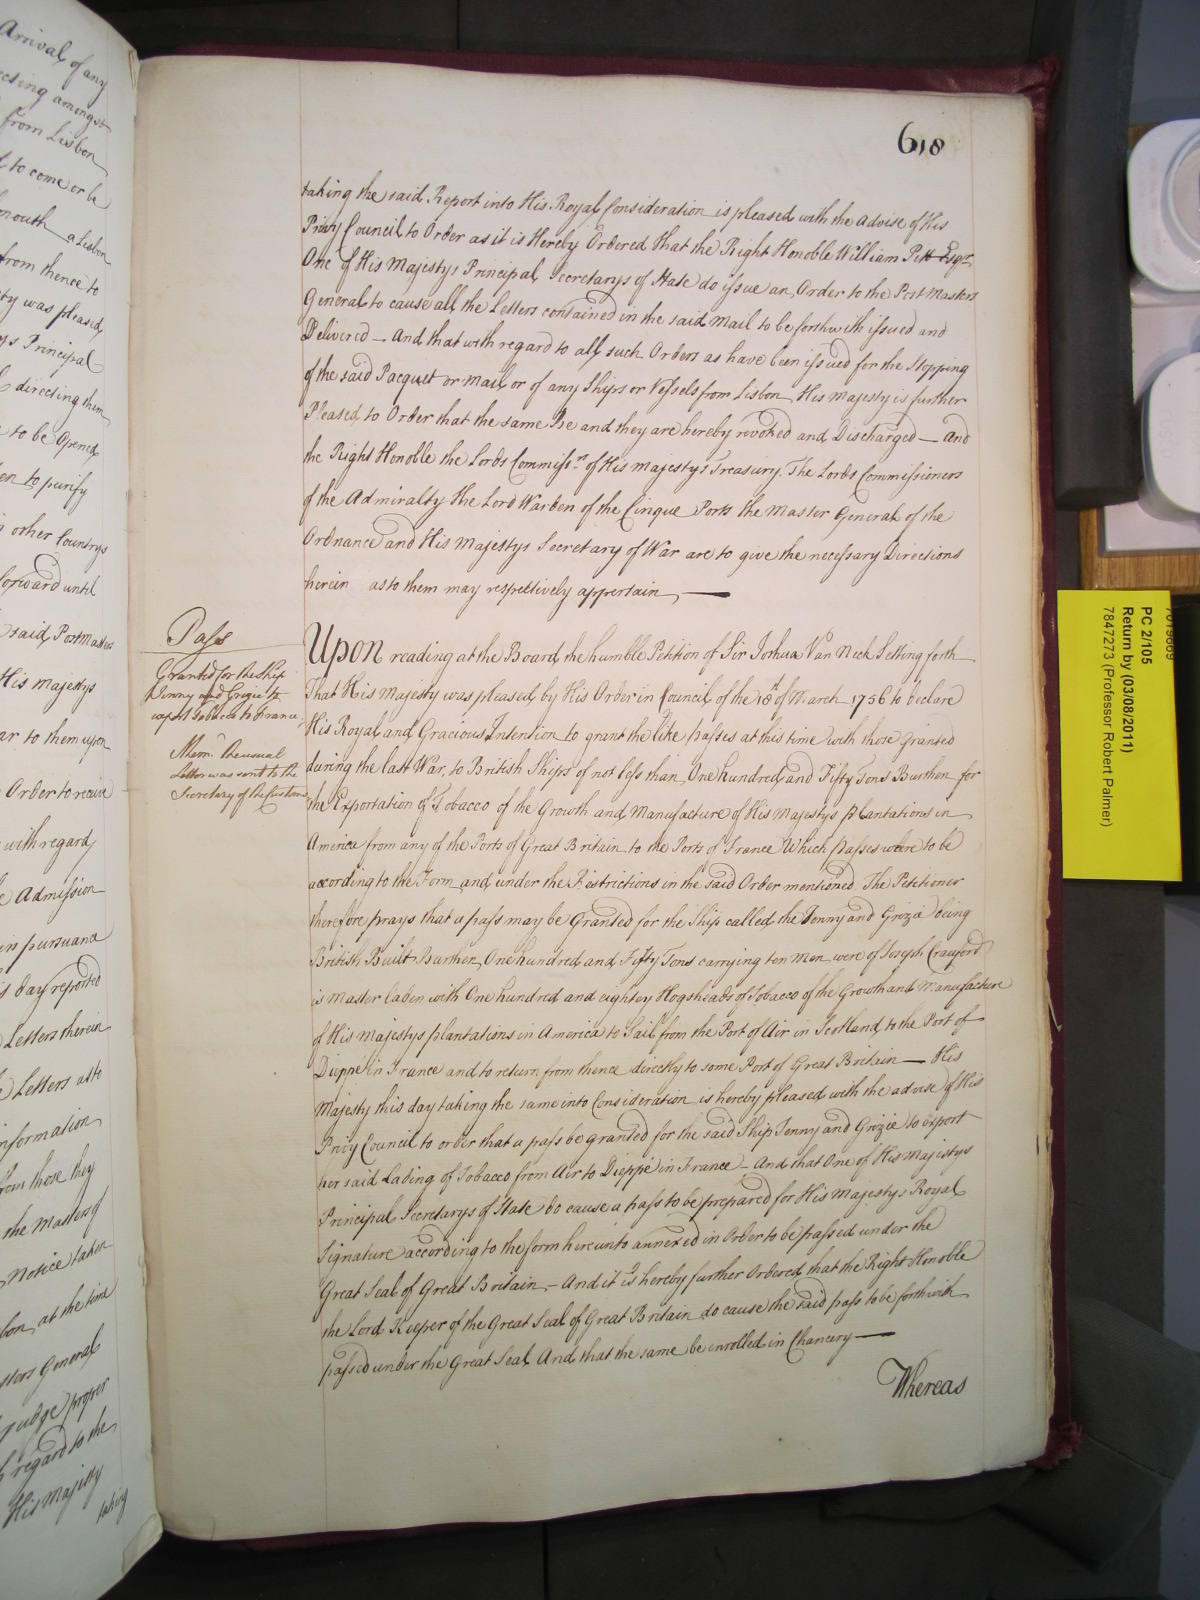 Arrival of any
amongst
from Lisbon
to come or be
a Lisbon
from thence to
was pleased
Principal
directing them
to be Opened
to purify
other Countrys
forward until
said Post Masters
His Majestys
to them upon
Order to receive
with regard
Admission
in pursuance
day reported
Letters therein
Letters as to
information
from those they
the Masters of
Notice taken
at the time
General
Judge proper
regard to the
His Majesty
taking
618
taking the said Report into His Royal Consideration is pleased with the Advise of His
Privy Council to Order as it is Hereby Ordered That the Right Honoble William Pitt Esqr.
One of His Majestys Principal Secretarys of State do issue an Order to the Post Masters
General to cause all the Letters contained in the said Mail to be forthwith issued and
Delivered — And that with regard to all such Orders as have been issued for the Stopping
of the said Pacquet or Mail or of any Ships or Vessels from Lisbon His Majesty is further
Pleased to Order that the same Be and they are hereby revoked and Discharged — And
the Right Honoble the Lords Commissrs. of His Majestys Treasury. The Lords Commissioners
of the Admiralty the Lord Warden of the Cinque Ports the Master General of the
Ordnance and His Majestys Secretary of War are to give the necessary Directions
herein as to them may respectively appertain —
Pass
Granted for the Ship
Jenny and Grozie to
export Tobacco to France.
Mem. The usual
Letter was sent to the
Secretary of the Customs
Upon reading at the Board the humble Petition of Sir Joshua Van Neck Setting forth
That His Majesty was pleased by His Order in Council of the of March 1756 to declare
His Royal and Gracious Intension to grant the like passes at this time with those Granted
during the last War, to British Ships of not less than One hundred and Fifty Tons Burthen for
the Exportation of Tobacco of the Growth and Manufacture of His Majestys plantations in
America from any of the Ports of Great Britain to the Ports of France Which passes were to be
according to the Form and under the Restrictions in the said Order mentioned The Petitioner
therefore prays that a pass may be Granted for the Ship called the Jenny and Grozie being
British Built Burthen One hundred and Fifty Tons carrying ten Men were of Joseph Crauford
is Master laden with One hundred and eighty Hogsheads of Tobacco of the Growth and Manufacture
of His Majestys plantations in America to Sail from the Port of Air in Scotland to the Port of
Dieppe in France and to return from thence directly to some Port of Great Britain — His
Majesty this day taking the same into Consideration is hereby pleased with the advise of His
Privy Council to order that a pass be granted for the said Ship Jenny and Grozie to export
her said Lading of Tobacco from Air to Dieppe in France — And that One of His Majestys
Principal Secretarys of State do cause a pass to be prepared for His Majestys Royal
Signature according to the form hereunto annexed in Order to be passed under the
Great Seal of Great Britain — And it is hereby further Ordered that the Right Honoble
the Lord Keeper of the Great Seal of Great Britain do cause the said pass to be forthwith
passed under the Great Seal And that the same be enrolled in Chancery —
Whereas
PC 2/105
Return by (03/08/2011)
7847273 (Professor Robert Palmer)